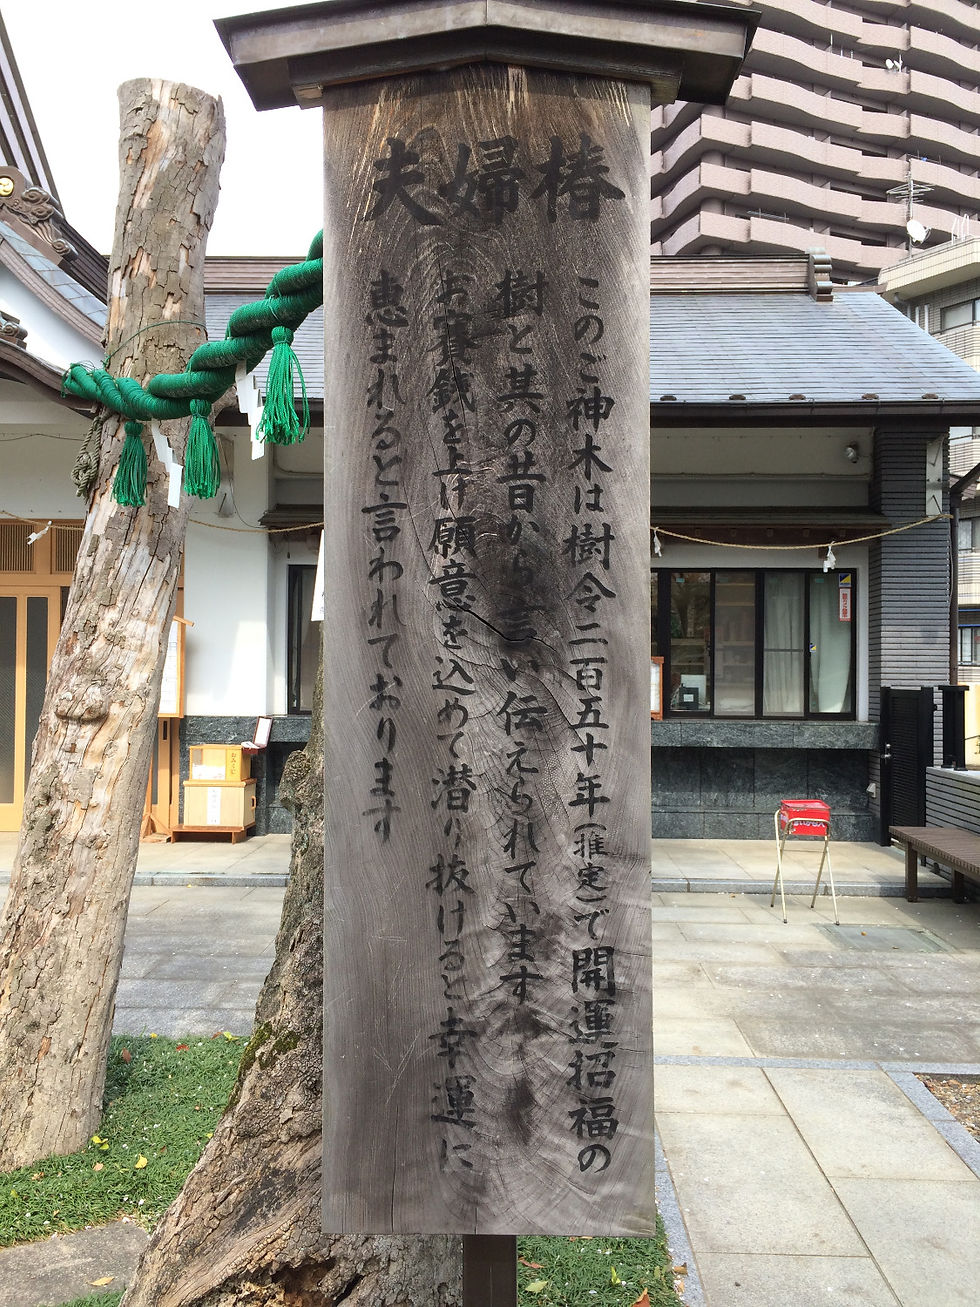 夫婦椿
このご神木は樹令二百五十年(推定)で開運招福の
樹と其の昔から言い伝えられています
お賽銭を上げ願意を込めて潜り抜けると幸運に
恵まれると言われております